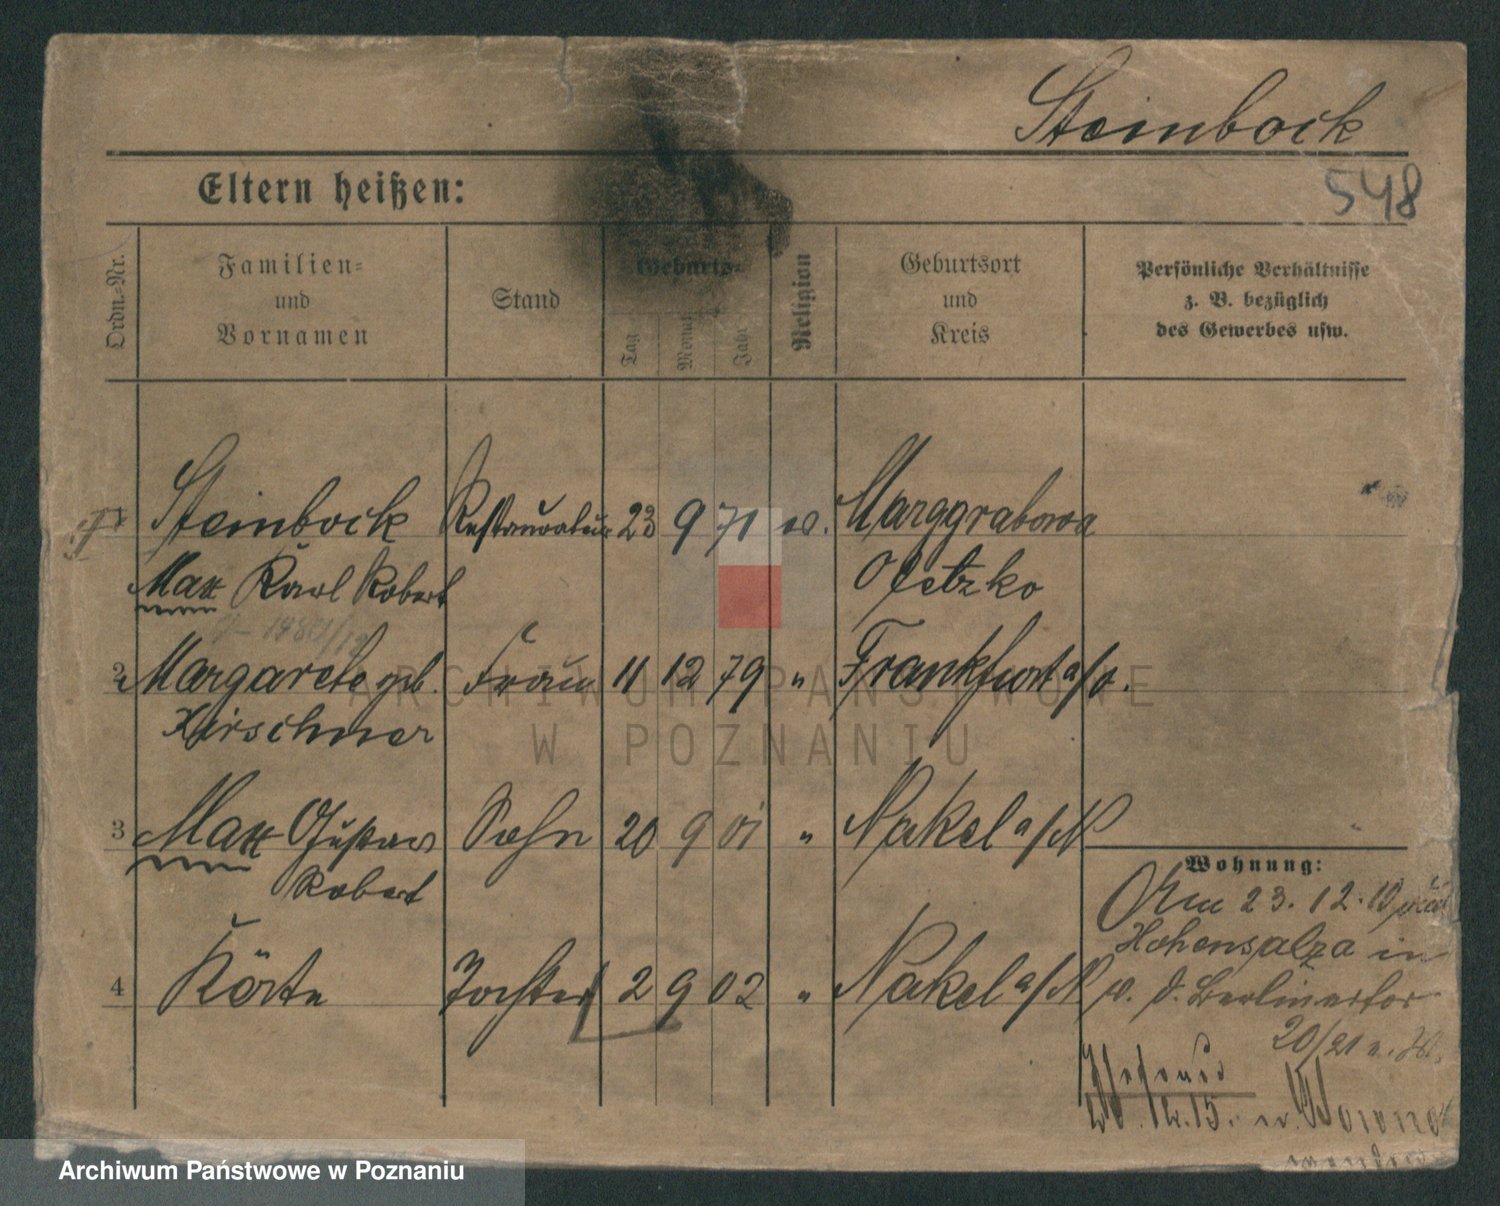 Steinbock
548
Eltern heißen:
Ordn.-Nr.
Familien- und Vornamen
Stand
Geburts-
Tag
Monat
Jahr
Religion
Geburtsort und Kreis
Persönliche Verhältnisse z. B. bezüglich des Gewerbes usw.
1 Steinbock Restaurateur 23 9 71 ev. Marggrabowa
Max Karl Robert Oletzko
2 Margarete geb. Frau 11 12 79 " Frankfurt a/o.
Kirschner
3 Max Gustav Sohn 20 9 01 " Nakel a/N
Robert
4 Körte Tochter 2 9 02 " Nakel a/N
Wohnung:
Am 23. 12. 10
Hohensalza in
v. d. Berlinertor
20/21
12. 15.
ARCHIWUM PAŃSTWOWE
W POZNANIU
Archiwum Państwowe w Poznaniu